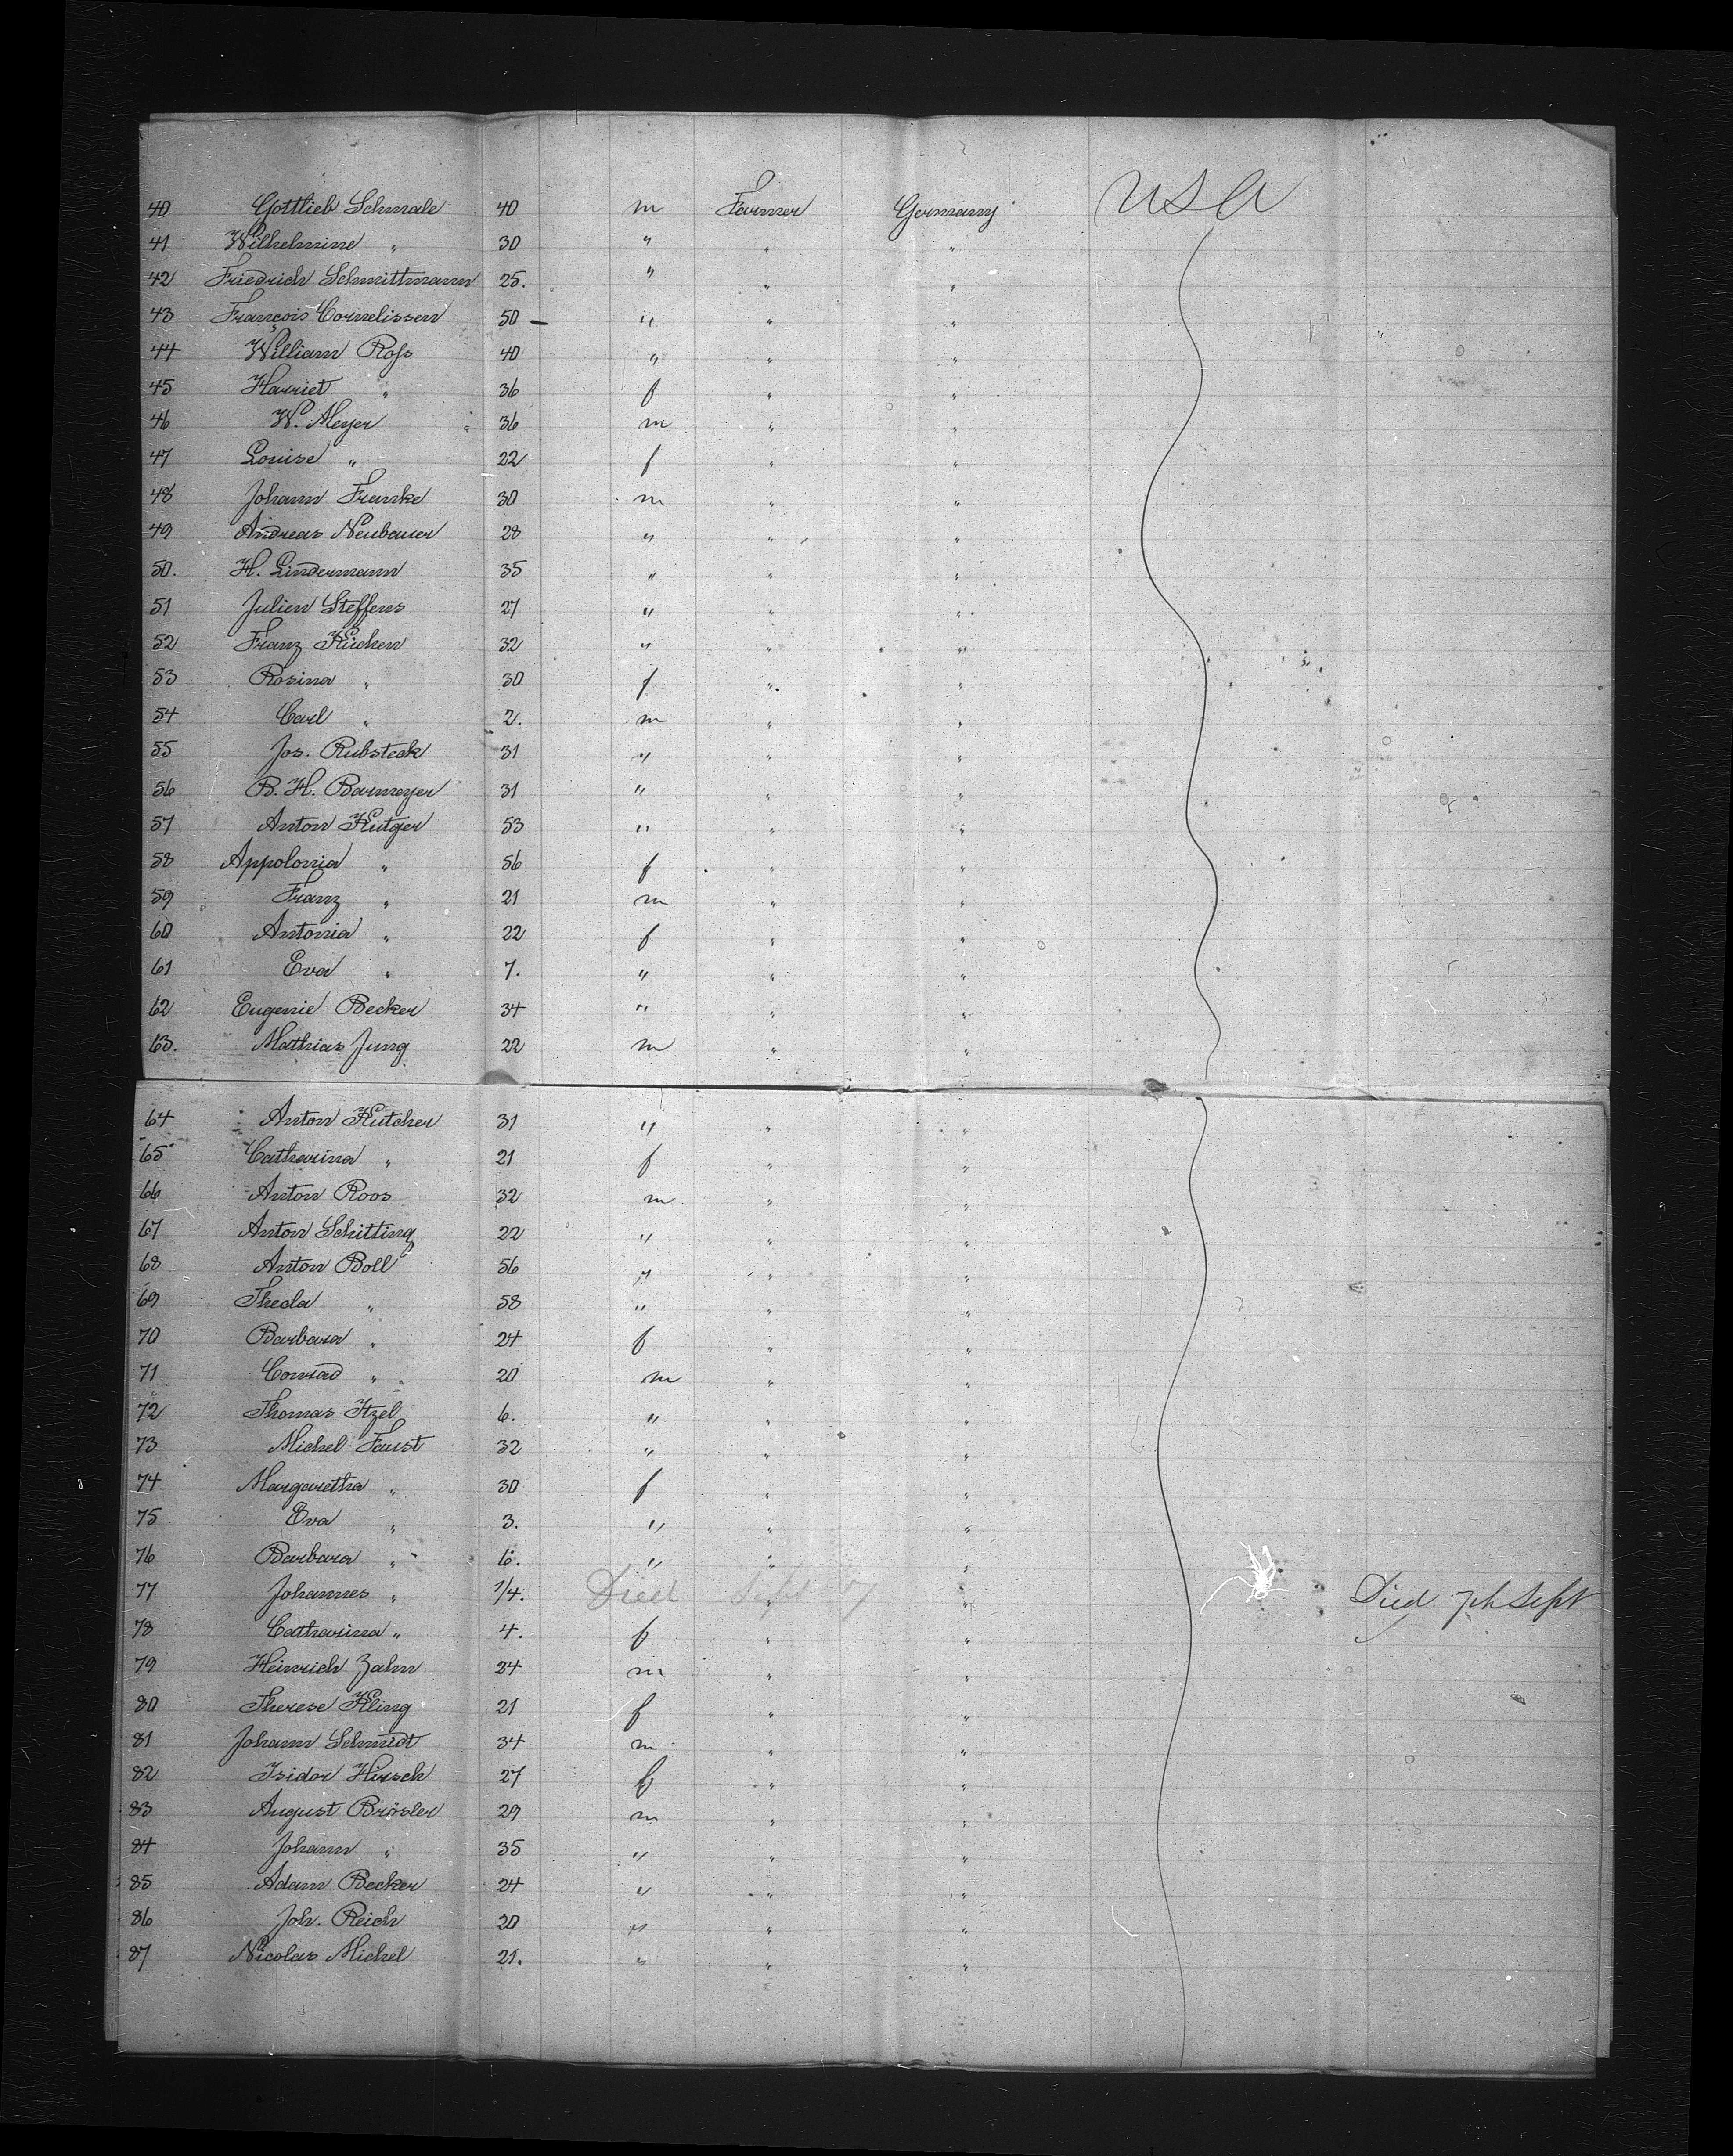 40 Gottlieb Schmale 40 m Farmer Germany USA
41 Wilhelmine " 30 " " "
42 Friedrich Schmittmann 25. " " "
43 François Cornelissen 50 — " " "
44 William Ross 40 " " "
45 Harriet " 36 f " "
46 W. Meyer 36 m " "
47 Louise " 22 f " "
48 Johann Franke 30 m " "
49 Andreas Neubauer 28 " " "
50. H. Lindermann 35 " " "
51 Julien Steffens 27 " " "
52 Franz Küchen 32 " " "
53 Rosina " 30 f " "
54 Carl " 2. m " "
55 Jos. Rubsteck 31 " " "
56 B. H. Barmeyer 31 " " "
57 Anton Kutger 53 " " "
58 Appolonia " 56 f " "
59 Franz " 21 m " "
60 Antonia " 22 f " "
61 Eva " 7. " " "
62 Eugenie Becker 34 " " "
63. Mathias Jung 22 m " "
64 Anton Kutcher 31 " " "
65 Catharina " 21 f " "
66 Anton Roos 32 m " "
67 Anton Schitting 22 " " "
68 Anton Boll 56 " " "
69 Thecla " 58 " " "
70 Barbara " 24 f " "
71 Conrad " 20 m " "
72 Thomas Itzel 6. " " "
73 Michel Faust 32 " " "
74 Margaretha " 30 f " "
75 Eva " 3. " " "
76 Barbara " 6. " " "
77 Johannes " 1/4. Died Sept 7 " " Died 7th Sept
78 Catharina " 4. f " "
79 Heinrich Zahn 24 m " "
80 Therese Kling 21 f " "
81 Johann Schmidt 34 m " "
82 Isidor Hirsch 27 f " "
83 August Brösler 29 m " "
84 Johann " 35 " " "
85 Adam Becker 24 " " "
86 Joh. Reich 20 " " "
87 Nicolas Michel 21. " " "